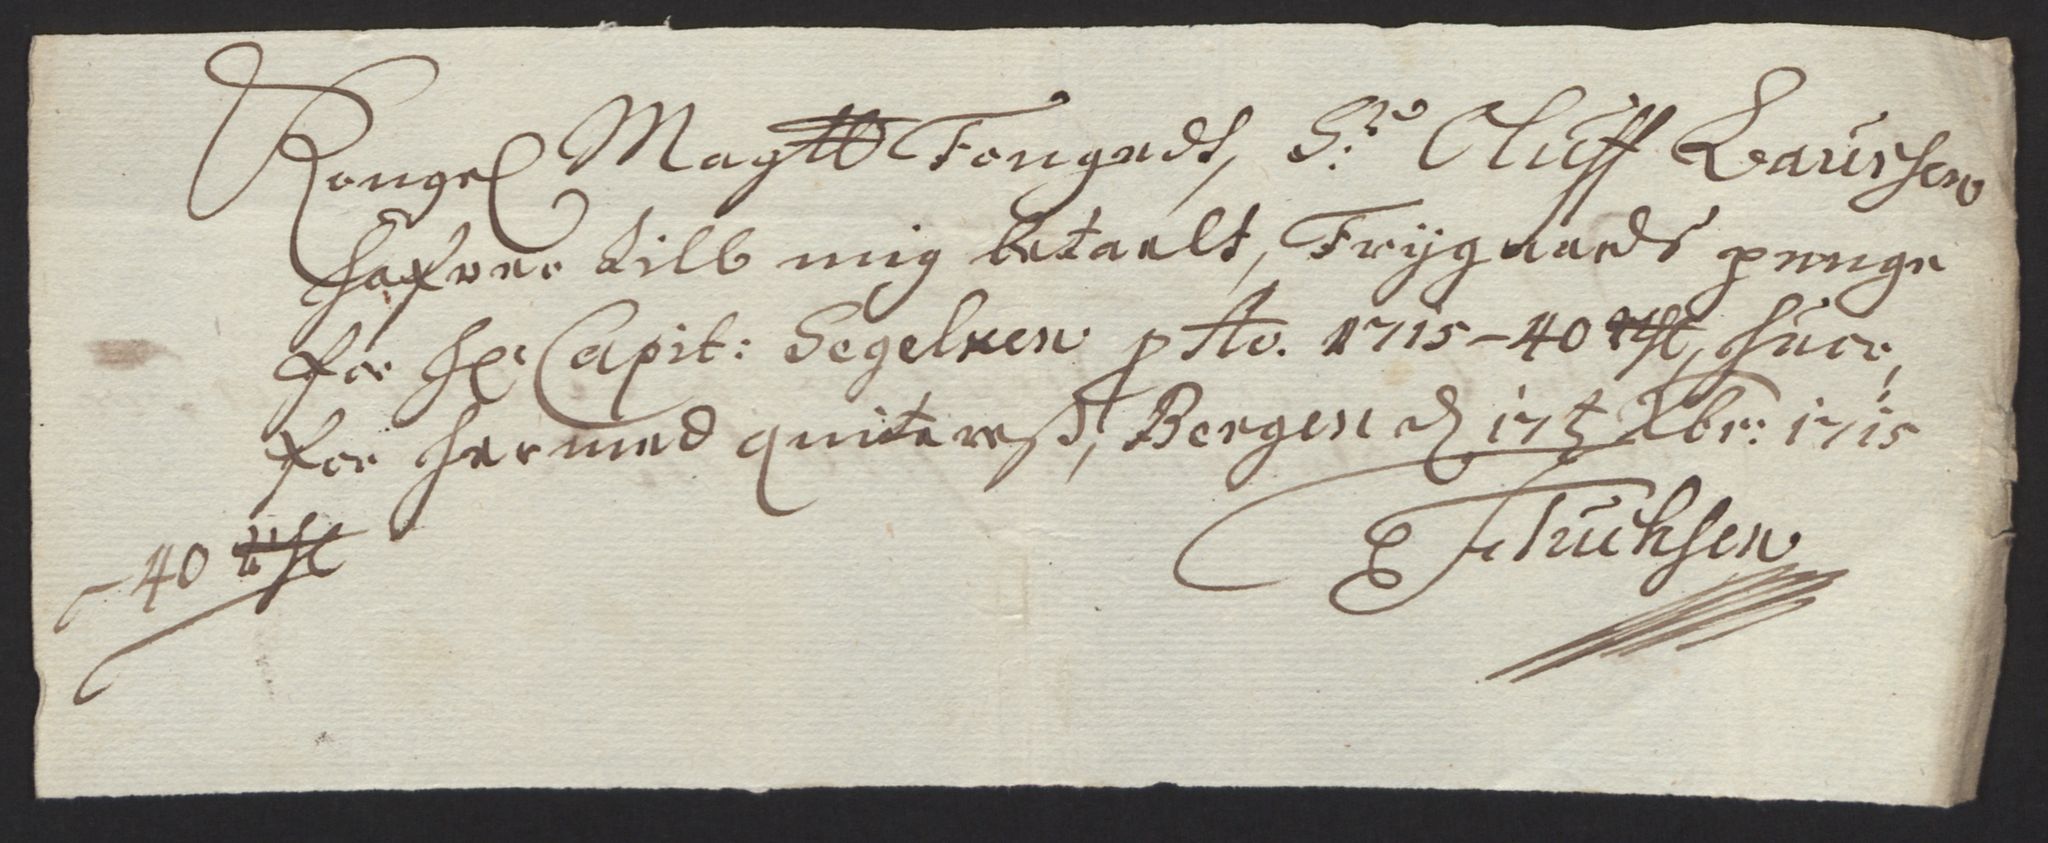 Kongel Maytts Fougedt, Sr. Oluff Laursen
hafver till mig betaelt, Frygaards penge
for Hr Capit: Segelken p Ao. 1715 - 40 Rdl, huor,
for hermed quiteres, Bergen d 17 t Xbr: 1715
- 40 Rdl
E Fluchsen